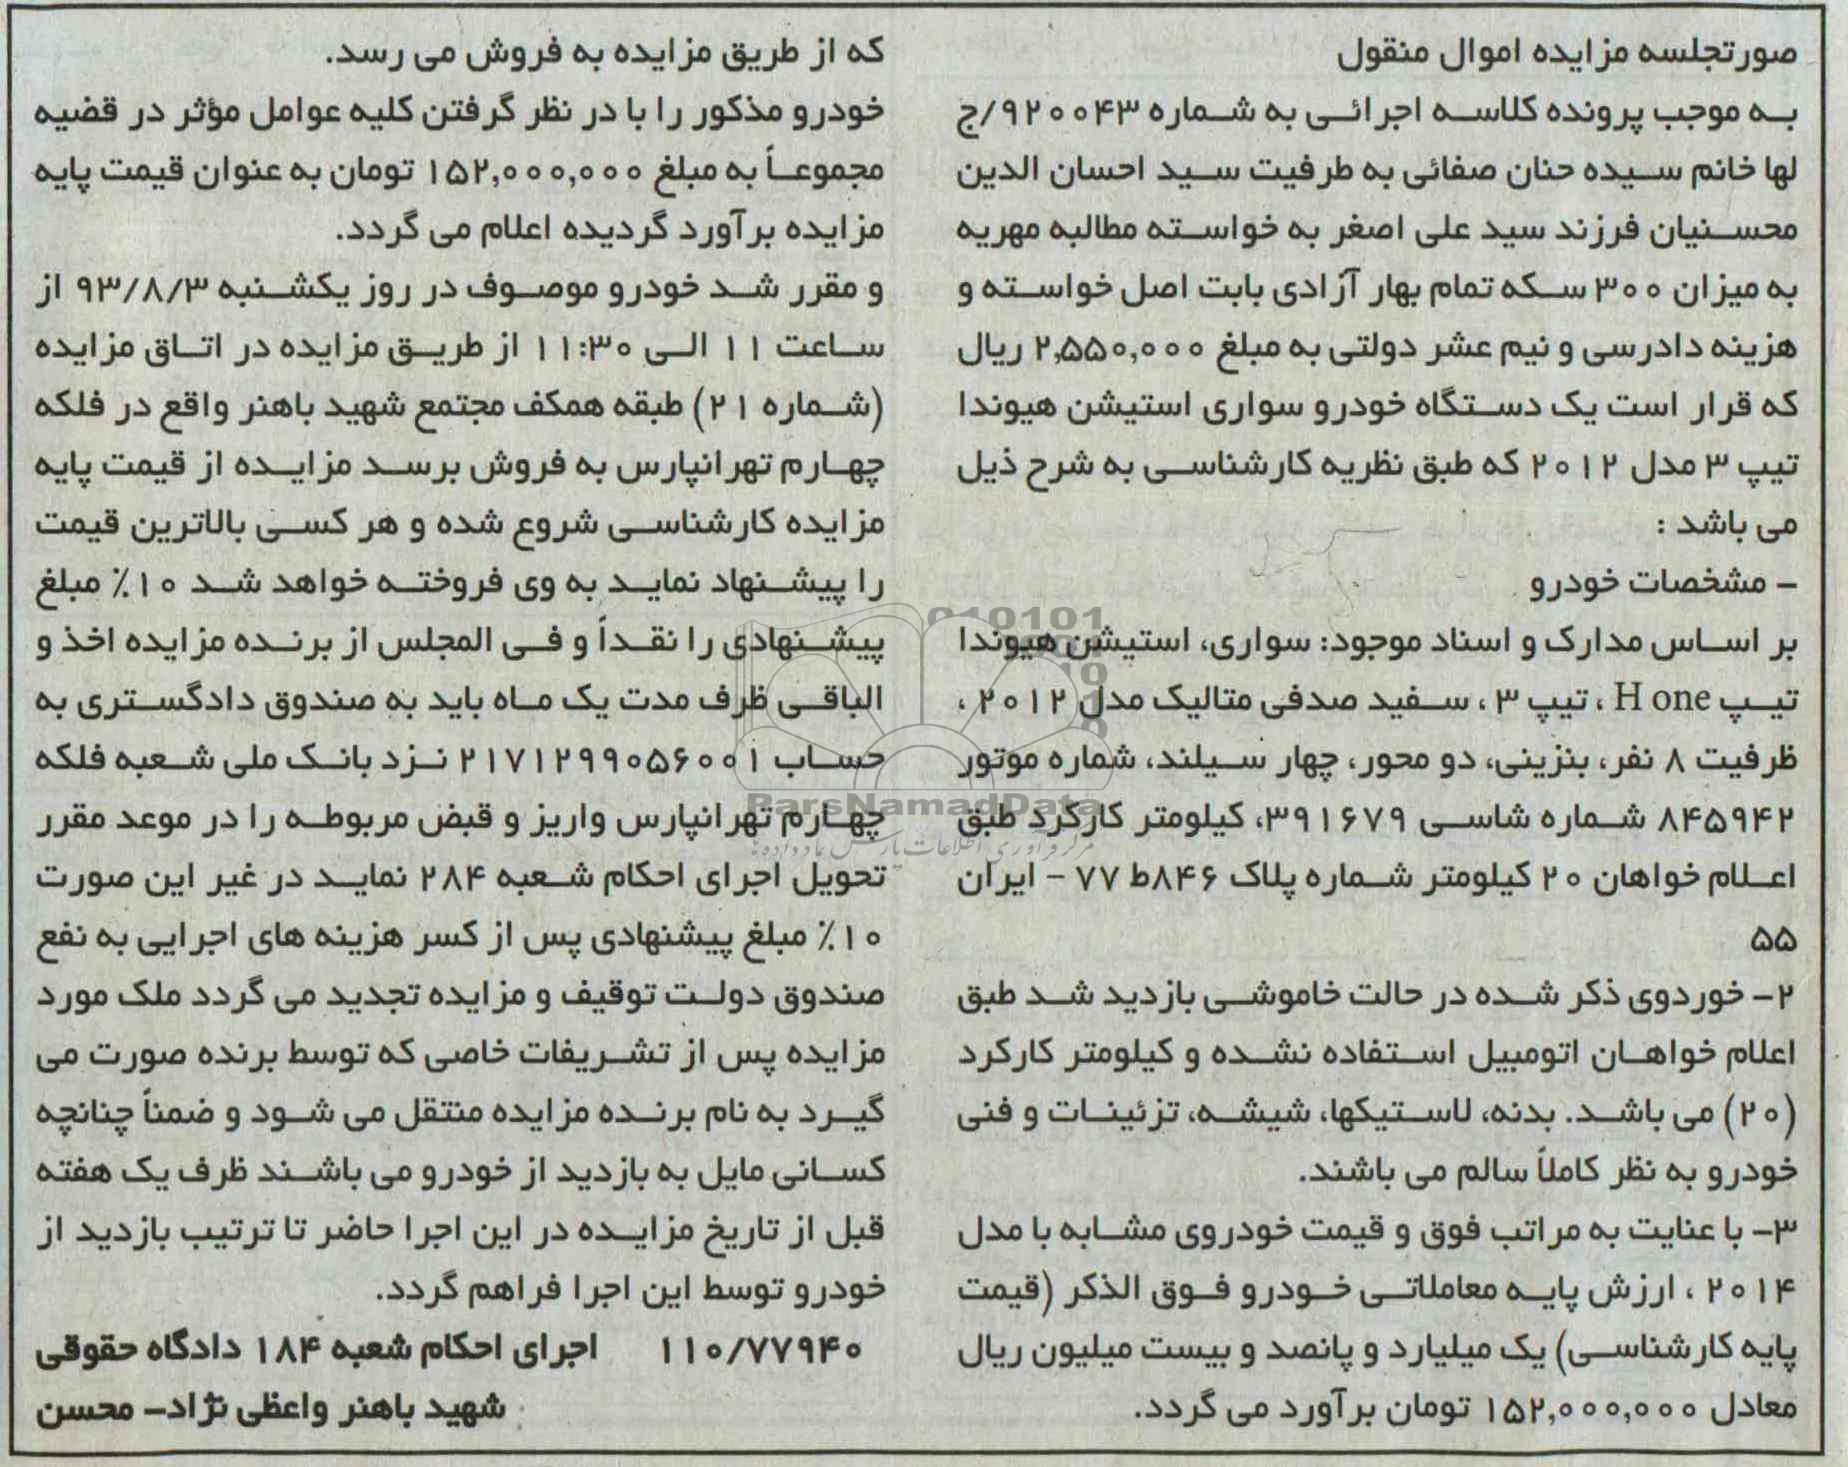 صورتجلسه مزایده اموال منقول
به موجب پرونده کلاسه اجرائی به شماره ۹۲۰۰۴۳/ج
لها خانم سیده حنان صفائی به طرفیت سید احسان الدین
محسنیان فرزند سید علی اصغر به خواسته مطالبه مهریه
به میزان ۳۰۰ سکه تمام بهار آزادی بابت اصل خواسته و
هزینه دادرسی و نیم عشر دولتی به مبلغ ۲,۵۵۰,۰۰۰ ریال
که قرار است یک دستگاه خودرو سواری استیشن هیوندا
تیپ ۳ مدل ۲۰۱۲ که طبق نظریه کارشناسی به شرح ذیل
می باشد :
- مشخصات خودرو
بر اساس مدارک و اسناد موجود: سواری، استیشن هیوندا
تیپ H one ، تیپ ۳ ، سفید صدفی متالیک مدل ۲۰۱۲ ،
ظرفیت ۸ نفر، بنزینی، دو محور، چهار سیلند، شماره موتور
۸۴۵۹۴۲ شماره شاسی ۳۹۱۶۷۹، کیلومتر کارکرد طبق
اعلام خواهان ۲۰ کیلومتر شماره پلاک ۸۴۶ط ۷۷ - ایران
۵۵
۲- خوردوی ذکر شده در حالت خاموشی بازدید شد طبق
اعلام خواهان اتومبیل استفاده نشده و کیلومتر کارکرد
(۲۰) می باشد. بدنه، لاستیکها، شیشه، تزئینات و فنی
خودرو به نظر کاملاً سالم می باشند.
۳- با عنایت به مراتب فوق و قیمت خودروی مشابه با مدل
۲۰۱۴ ، ارزش پایه معاملاتی خودرو فوق الذکر (قیمت
پایه کارشناسی) یک میلیارد و پانصد و بیست میلیون ریال
معادل ۱۵۲,۰۰۰,۰۰۰ تومان برآورد می گردد.
که از طریق مزایده به فروش می رسد.
خودرو مذکور را با در نظر گرفتن کلیه عوامل مؤثر در قضیه
مجموعاً به مبلغ ۱۵۲,۰۰۰,۰۰۰ تومان به عنوان قیمت پایه
مزایده برآورد گردیده اعلام می گردد.
و مقرر شد خودرو موصوف در روز یکشنبه ۹۳/۸/۳ از
ساعت ۱۱ الی ۱۱:۳۰ از طریق مزایده در اتاق مزایده
(شماره ۲۱) طبقه همکف مجتمع شهید باهنر واقع در فلکه
چهارم تهرانپارس به فروش برسد مزایده از قیمت پایه
مزایده کارشناسی شروع شده و هر کسی بالاترین قیمت
را پیشنهاد نماید به وی فروخته خواهد شد ۱۰٪ مبلغ
پیشنهادی را نقداً و فی المجلس از برنده مزایده اخذ و
الباقی ظرف مدت یک ماه باید به صندوق دادگستری به
حساب ۲۱۷۱۲۹۹۰۵۶۰۰۱ نزد بانک ملی شعبه فلکه
چهارم تهرانپارس واریز و قبض مربوطه را در موعد مقرر
تحویل اجرای احکام شعبه ۲۸۴ نماید در غیر این صورت
۱۰٪ مبلغ پیشنهادی پس از کسر هزینه های اجرایی به نفع
صندوق دولت توقیف و مزایده تجدید می گردد ملک مورد
مزایده پس از تشریفات خاصی که توسط برنده صورت می
گیرد به نام برنده مزایده منتقل می شود و ضمناً چنانچه
کسانی مایل به بازدید از خودرو می باشند ظرف یک هفته
قبل از تاریخ مزایده در این اجرا حاضر تا ترتیب بازدید از
خودرو توسط این اجرا فراهم گردد.
۱۱۰/۷۷۹۴۰ اجرای احکام شعبه ۱۸۴ دادگاه حقوقی
شهید باهنر واعظی نژاد- محسن
ParsNamadData
مرکز فرآوری اطلاعات پارس نماد داده ها